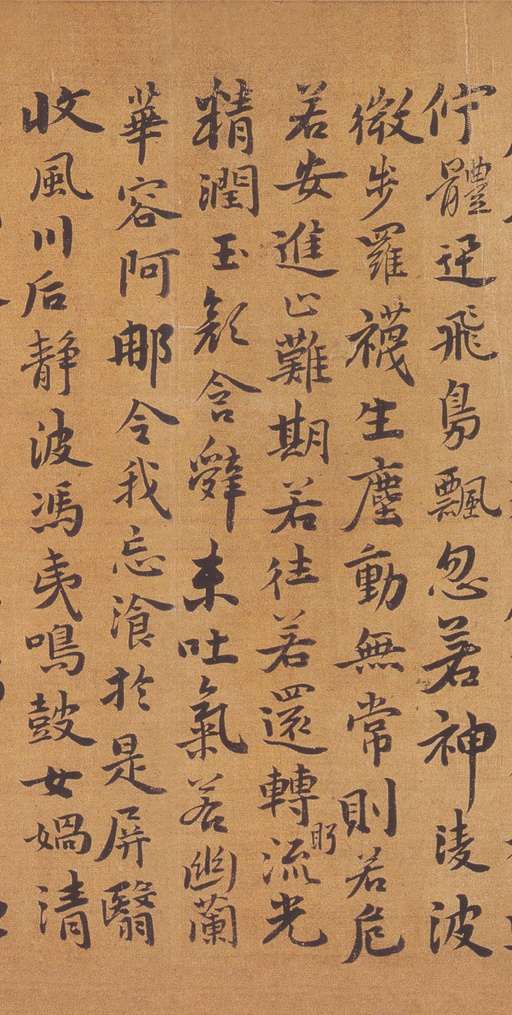 佇體迅飛鳧飄忽若神凌波
微步羅襪生塵動無常則若危
若安進止難期若往若還轉眄流光
精潤玉顏含辭未吐氣若幽蘭
華容阿那令我忘飡於是屏翳
收風川后静波馮夷鳴鼓女媧清